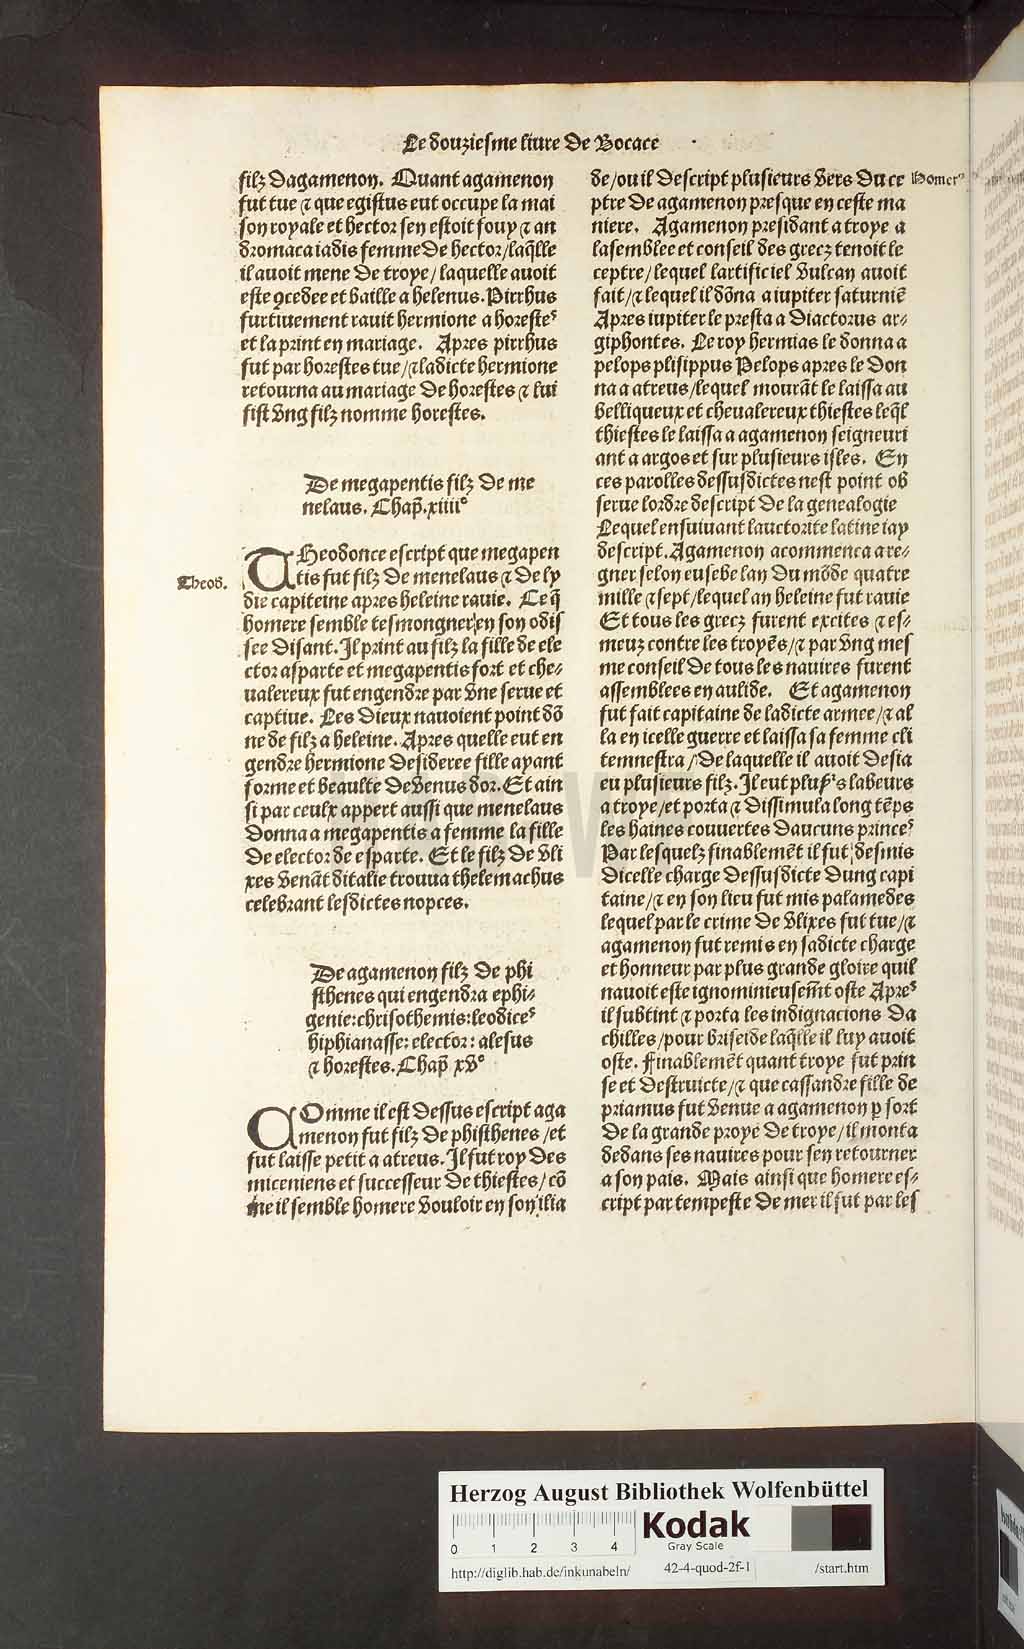 Le douziesme liure de Bocace
filz dagamenon. Quant agamenon
fut tue ⁊ que egistus eut occupe la mai
son royale et hector sen estoit fouy ⁊ an
dromaca iadis femme de hector/laq̃lle
il auoit mene de troye/ laquelle auoit
este ꝯcedee et baille a helenus. Pirrhus
furtiuement rauit hermione a horestes
et la print en mariage. Apres pirrhus
fut par horestes tue/⁊ ladicte hermione
retourna au mariage de horestes ⁊ lui
fist vng filz nomme horestes.
De megapentis filz de me
nelaus. Chap̃. xiiii°
Theod.
THeodonce escript que megapen
tis fut filz de menelaus ⁊ de ly
die capiteine apres heleine rauie. Ce q̃
homere semble tesmongner en son odis
see disant. Il print au filz la fille de ele
ctor asparte et megapentis fort et che⸗
ualereux fut engendre par vne serue et
captiue. Les dieux nauoient point dõ
ne de filz a heleine. Apres quelle eut en
gendre hermione desideree fille ayant
forme et beaulte de venus dor. Et ain
si par ceulx appert aussi que menelaus
donna a megapentis a femme la fille
de elector de esparte. Et le filz de vli
xes venãt ditalie trouua thelemachus
celebrant lesdictes nopces.
De agamenon filz de phi
sthenes qui engendra ephi⸗
genie: chrisothemis: leodices
hiphianasse: elector: alesus
⁊ horestes. Chap̃ xv°
COmme il est dessus escript aga
menon fut filz de phisthenes/et
fut laisse petit a atreus. Il fut roy des
miceniens et successeur de thiestes/ cõ
me il semble homere vouloir en son ilia
de/ou il descript plusieurs vers du ce
Homer
ptre de agamenon presque en ceste ma
niere. Agamenon presidant a troye a
lasemblee et conseil des grecz tenoit le
ceptre/ lequel lartificiel vulcan auoit
fait/⁊ lequel il dõna a iupiter saturniẽ
Apres iupiter le presta a diactorus ar⸗
giphontes. Le roy hermias le donna a
pelops plisippus Pelops apres le don
na a atreus/lequel mourãt le laissa au
belliqueux et cheualereux thiestes leq̃l
thiestes le laissa a agamenon seigneuri
ant a argos et sur plusieurs isles. En
ces parolles dessusdictes nest point ob
serue lordre descript de la genealogie
Lequel ensuiuant lauctorite latine iay
descript. Agamenon acommenca a re⸗
gner selon eusebe lan du mõde quatre
mille ⁊ sept/lequel an heleine fut rauie
Et tous les grecz furent excites ⁊ es⸗
meuz contre les troyẽs/⁊ par vng mes
me conseil de tous les nauires furent
assemblees en aulide. Et agamenon
fut fait capitaine de ladicte armee/⁊ al
la en icelle guerre et laissa sa femme cli
temnestra/ de laquelle il auoit desia
eu plusieurs filz. Il eut plus's labeurs
a troye/et porta ⁊ dissimula long tẽps
les haines couuertes daucuns princes
Par lesquelz finablemẽt il fut desmis
dicelle charge dessusdicte dung capi
taine/⁊ en son lieu fut mis palamedes
lequel par le crime de vlixes fut tue/⁊
agamenon fut remis en sadicte charge
et honneur par plus grande gloire quil
nauoit este ignominieusem̃t oste Apres
il subtint ⁊ porta les indignacions da
chilles/pour briseide laq̃lle il luy auoit
oste. Finablemẽt quant troye fut prin
se et destruicte/⁊ que cassandre fille de
priamus fut venue a agamenon ꝑ sort
de la grande proye de troye/ il monta
dedans ses nauires pour sen retourner
a son pais. Mais ainsi que homere es⸗
cript par tempeste de mer il fut par les
Herzog August Bibliothek Wolfenbüttel
0 1 2 3 4
Kodak
Gray Scale
http://diglib.hab.de/inkunabeln/ 42-4-quod-2f-1 /start.htm